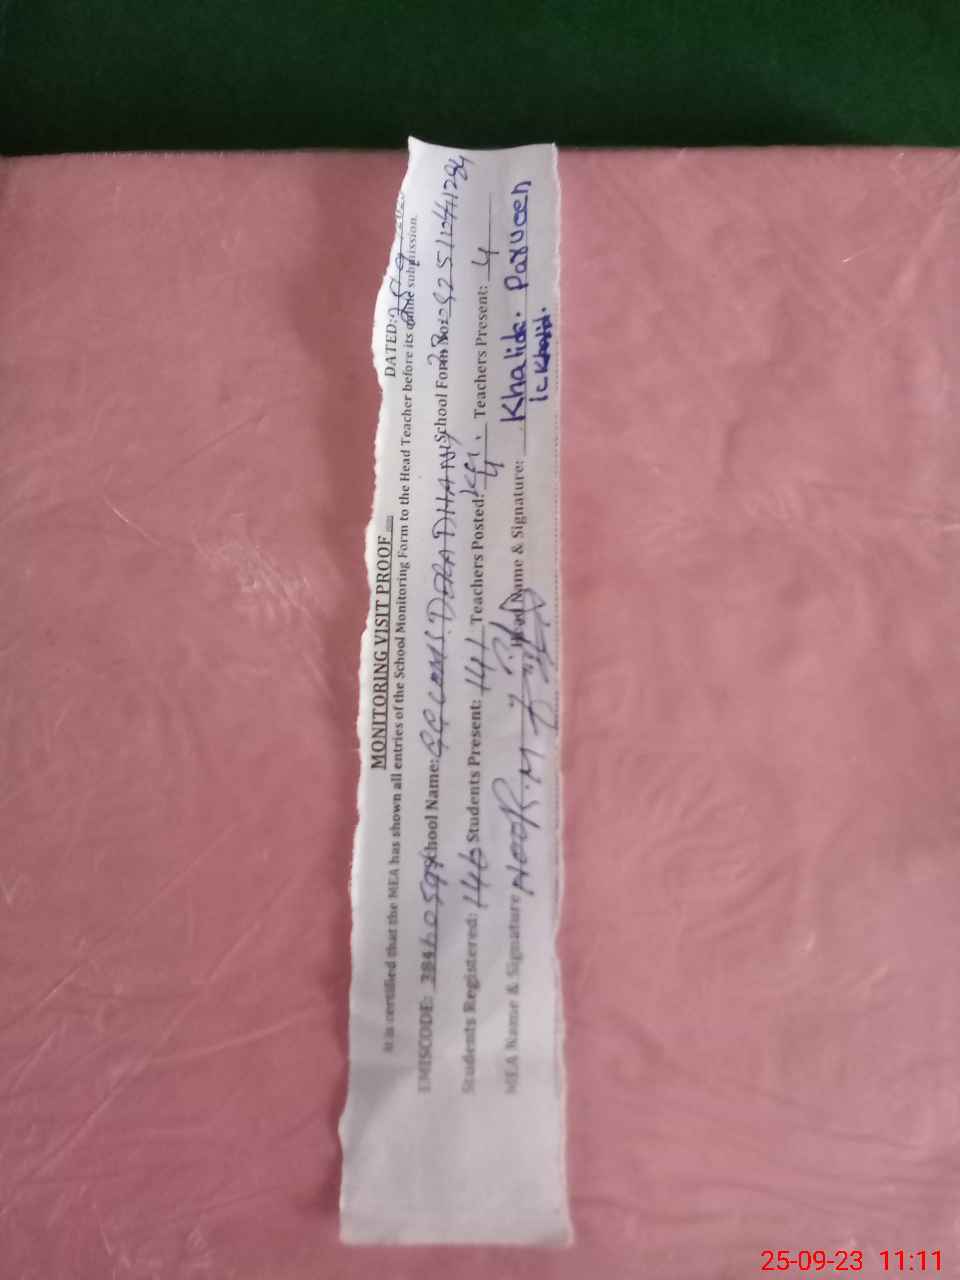 MONITORING VISIT PROOF DATED:
It is certified that the MEA has shown all entries of the School Monitoring Form to the Head Teacher before its online submission.
EMISCODE: School Name: DERA DHANY School Form No:
Students Registered: 146 Students Present: 141 Teachers Posted: 4 Teachers Present: 4
MEA Name & Signature NOOR.M Head Name & Signature: Khalida. Parveen
25-09-23 11:11